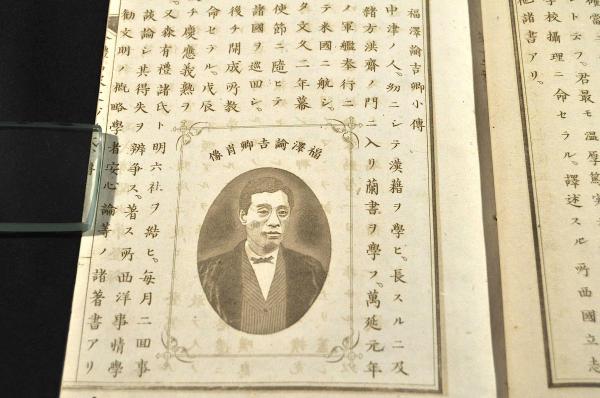 學校攝理ニ命セラル。譯述スル所西國立志
他諸書アリ。
福澤諭吉卿小傳
中津ノ人。幼ニシテ漢籍ヲ學ヒ。長スルニ及
緒方洪齋ノ門ニ入リ蘭書ヲ學フ。萬延元年
ノ軍艦奉行ニ
テ米國ニ航シ。
タ文久二年幕
使節ニ隨ヒテ
諸國ヲ巡回シ。
後チ開成所教
命セラル。戊辰
チ慶應義塾ヲ
福澤諭吉卿肖像
又森有禮諸氏ト明六社ヲ結ヒ。毎月二回事
談論シ其得失ヲ辨争ス。著ス所西洋事情學
勸文明ノ概略學者安心論等ノ諸著書アリ